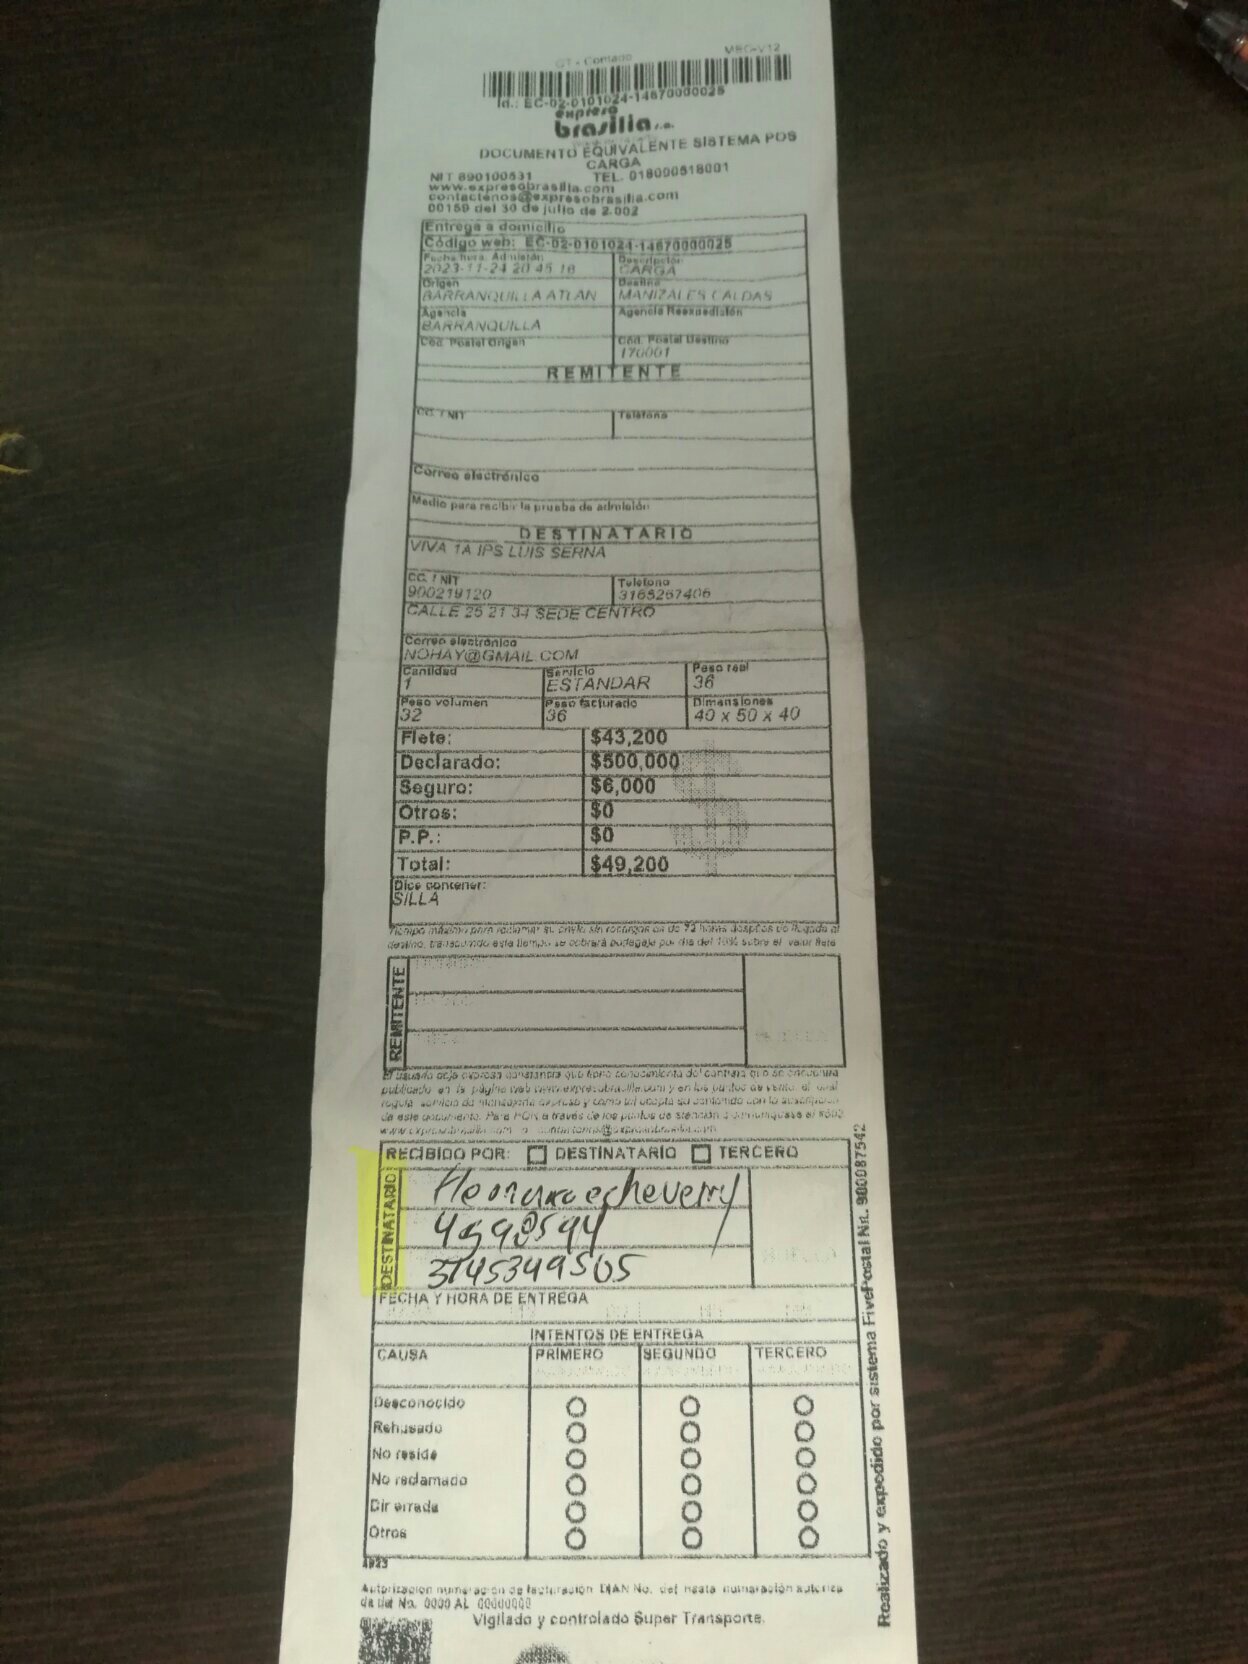 GT - Contado MEG-V12
Id.: EC-02-0101024-14670000025
expreso
brasilia s.a.
DOCUMENTO EQUIVALENTE SISTEMA POS
CARGA
NIT 890100531 TEL. 018000518001
www.expresobrasilia.com
contactenos@expresobrasilia.com
00159 del 30 de julio de 2.002
Entrega a domicilio
Código web: EC-02-0101024-14670000025
Fecha hora. Admisión Descripción
2023-11-24 20 45 18 CARGA
Origen Destino
BARRANQUILLA ATLAN MANIZALES CALDAS
Agencia Agencia Reexpedición
BARRANQUILLA
Cod. Postal Origen Cod. Postal Destino
170001
REMITENTE
CC. / NIT Teléfono
Correo electrónico
Medio para recibir la prueba de admisión
DESTINATARIO
VIVA 1A IPS LUIS SERNA
CC. / NIT Teléfono
900219120 3165267406
CALLE 25 21 34 SEDE CENTRO
Correo electrónico
NOHAY@GMAIL.COM
Cantidad Servicio Peso real
1 ESTANDAR 36
Peso volumen Peso facturado Dimensiones
32 36 40 x 50 x 40
Flete: $43,200
Declarado: $500,000
Seguro: $6,000
Otros: $0
P.P.: $0
Total: $49,200
Dice contener:
SILLA
Tiempo máximo para reclamar su envío sin recargos es de 72 horas después de llegada al
destino, transcurrido este tiempo se cobrará bodegaje por día del 10% sobre el valor flete
REMITENTE
El usuario deja expresa constancia que tiene conocimiento del contrato que se encuentra
publicado en la página web www.expresobrasilia.com y en los puntos de venta, el cual
regula servicio de mensajería expresa y como tal acepta su contenido con la suscripción
de este documento. Para PQR a través de los puntos de atención o comuníquese al
www.expresobrasilia.com o contactenos@expresobrasilia.com
RECIBIDO POR: DESTINATARIO TERCERO
DESTINATARIO
echeverry
4598594
3145349505
FECHA Y HORA DE ENTREGA
INTENTOS DE ENTREGA
CAUSA PRIMERO SEGUNDO TERCERO
Desconocido
Rehusado
No reside
No reclamado
Dir errada
Otros
4923
Autorizacion numeracion de facturación DIAN No. del hasta numeración autoriza
da del No. 0000 AL 00000000
Vigilado y controlado Super Transporte.
Realizado y expedido por sistema FivePostal Nit. 900087542